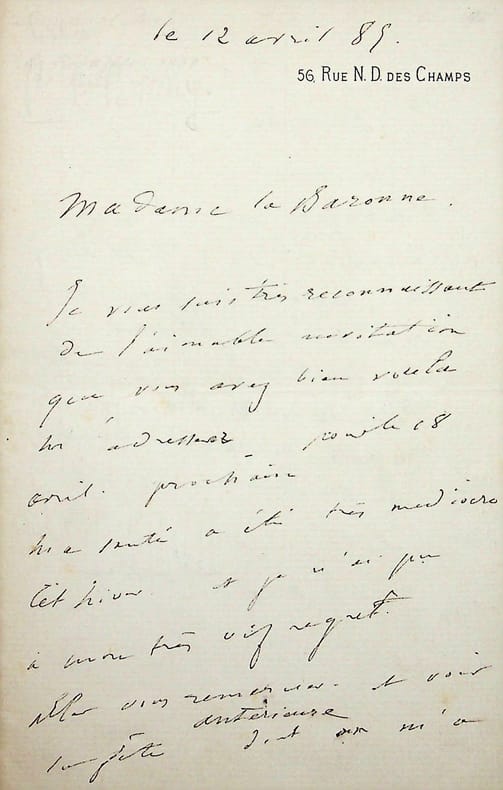 le 12 avril 85.
56, RUE N. D. DES CHAMPS
Madame la Baronne.
Je vous suis très reconnaissant
de l'aimable invitation
que vous avez bien voulu
m'adresser pour le 18
avril. prochain
ma santé a été très médiocre
cet hiver. et je n'ai pu
à mon très vif regret.
aller vous remercier. et voir
la fête antérieure dont on m'a